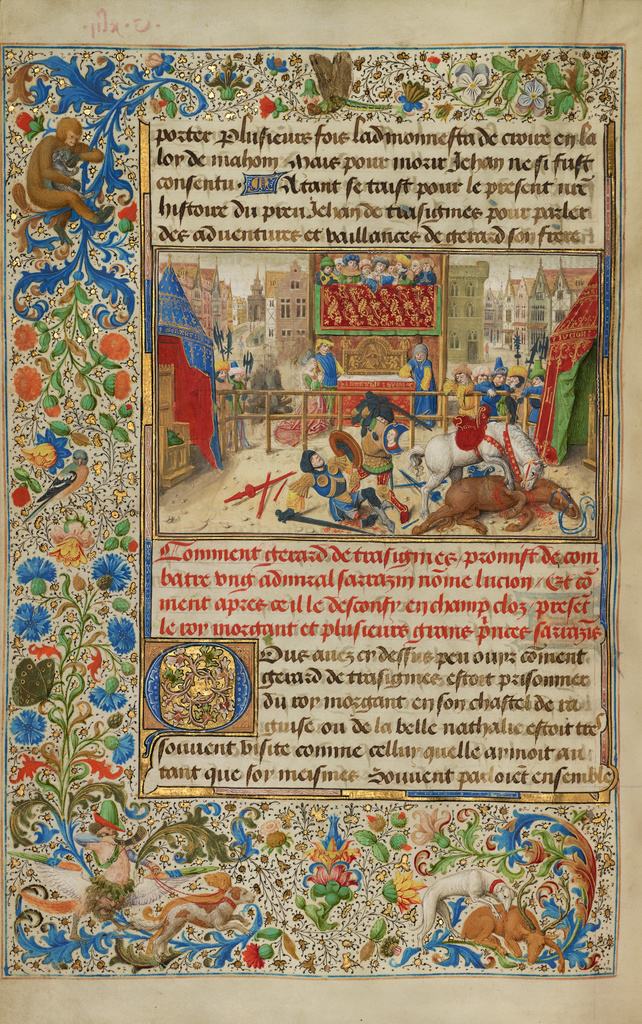 porter Plusieurs fois ladmonnesta de croire en la
loy de mahom Mais pour morir Jehan ne si fust
consentu Atant se taist pour le present nre
histoire du preu Jehan de trasignies pour parler
des adventures et vaillances de gerard son frere
Comment gerard de trasignies promist de com
batre vng admiral sarrazin nome lucion Et co
ment apres ce il le desconfy en champ cloz present
le roy morgant et plusieurs grans princes sarrazis
Ous auez cy dessus peu ouyr coment
gerard de trasignies estoit prisonnier
du roy morgant en son chastel de ra
guise ou de la belle nathalie estoit tres
souuent visite comme celluy quelle aymoit au
tant que soy meismes Souuent parloient ensemble